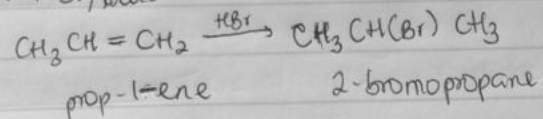 CH₃CH = CH₂ HBr → CH₃CH(Br) CH₃
prop-1-ene 2-bromopropane